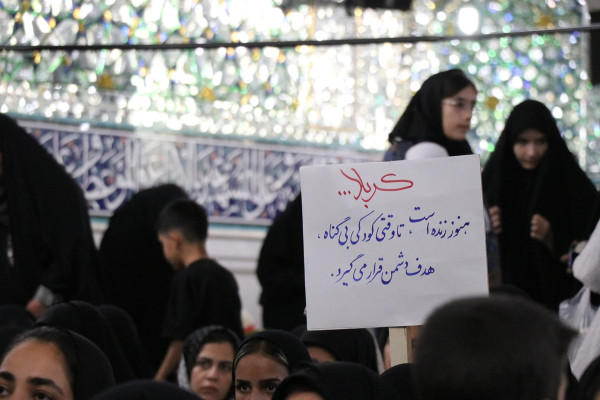 کربلا...
هنوز زنده است، تا وقتی کودکی بی گناه،
هدف دشمن قرار می گیرد.